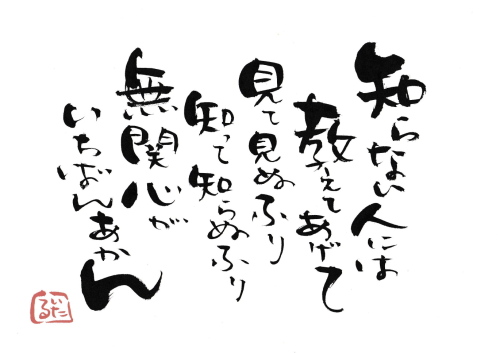 知らない人には
教えてあげて
見て見ぬふり
知って知らぬふり
無関心が
いちばんあかん